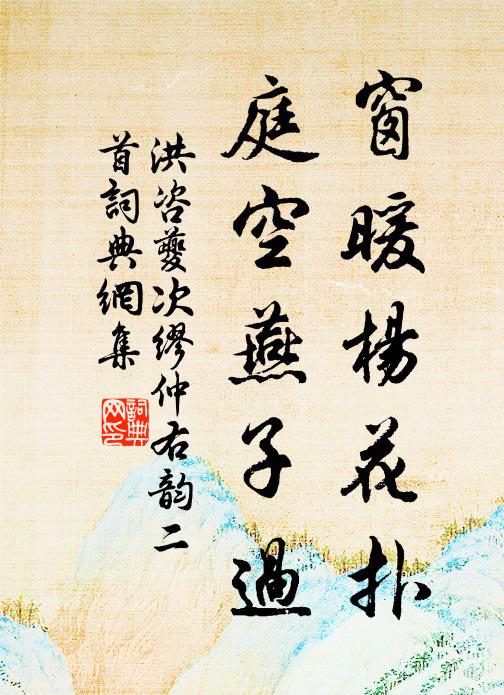 窗暖楊花扑
庭空燕子過
洪咨夔次繆仲右韵二
首詞典網集
詞典
网印